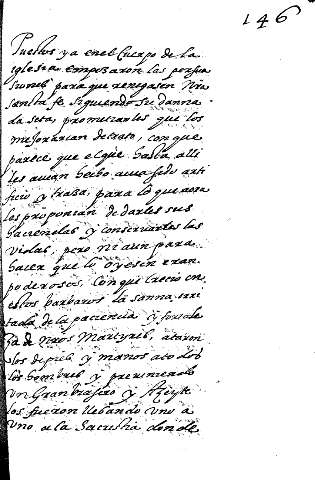 146
Puestos ya en el Cuerpo de la
iglesia empezaron las persua
siones para que renegasen Nra
santa fe, siguiendo su danna
da seta, prometiarles que los
mejorarian de trato, con que
parece que el que hasta alli
les avian hecho avia sido arti
ficio y traza, para lo que aora
les proponian de darles sus
haciendas y conservarles las
vidas, pero ni aun para
hacer que lo oyesen eran
poderosos, con que crecio en
estos barbaros la sanna irri
tada de la paciencia y fortale
za de nros Martyres, ataron
los de pies y manos a todos
los hombres y previniendo
un Gran brasero y Azeyte
los fueron llebando uno a
uno a la Sacristia donde